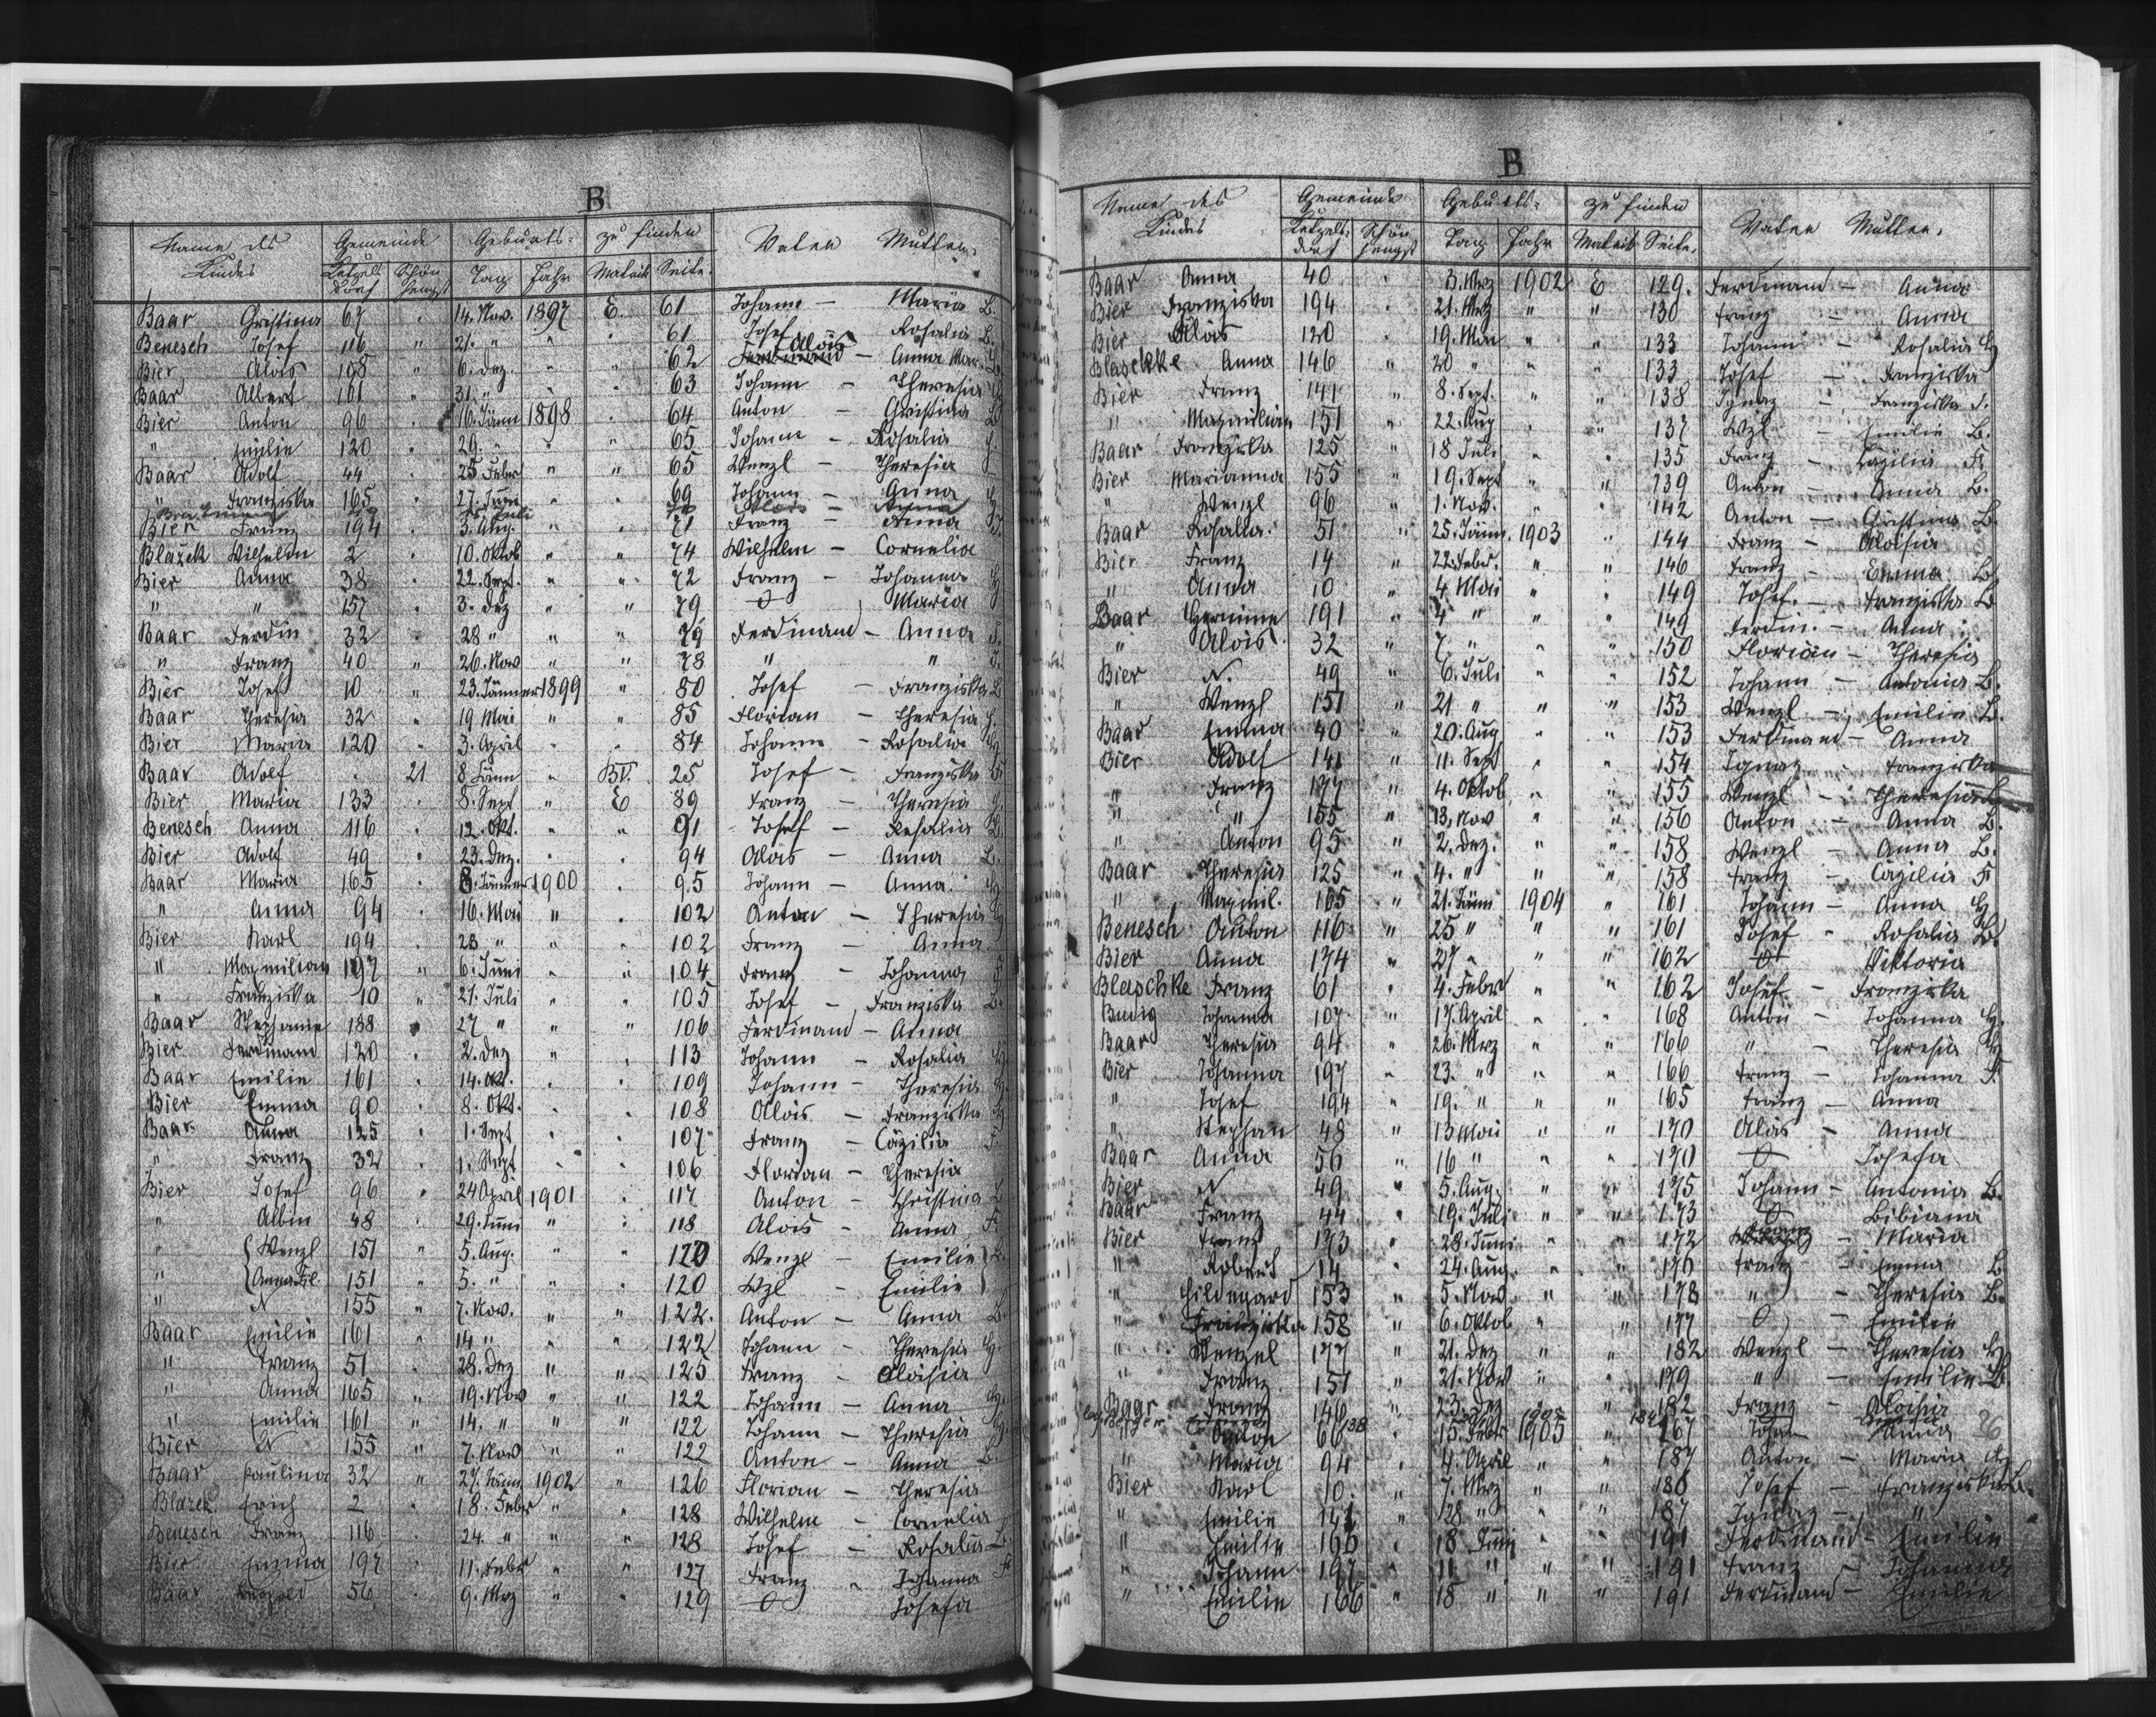 B
Name des Kindes Gemeinde Geburts= zu finden Vater Mutter
Ketzelsdorf Schönhengst Tag Jahr Matrik Seite.
Baar Christina 67 " 14. Nov. 1897 E. 61 Johann - Maria B.
Benesch Josef 116 " 21. " " " 61 Josef Rosalia B.
Bier Alois 198 " 6. Dez. " " 62 Alois - Anna Mar.
Baar Albert 161 " 31. " " " 63 Johann - Theresia
Bier Anton 96 " 16. Jänn 1898 " 64 Anton - Christina B
" Emilie 120 " 29. " " " 65 Johann - Rosalia
Baar Adolf 44 " 25 Febr " " 65 Wenzl - Theresia
" Franziska 165 " 27. Juni " " 69 Johann - Anna
Bier Franz 194 " 3. Aug. " " 71 Franz - Anna
Blažek Wilhelm 2 " 10. Oktob " " 74 Wilhelm - Cornelia
Bier Anna 38 " 22. Sept. " " 72 Franz - Johanna
" " 157 " 3. Dez " " 79 O Maria
Baar Ferdin 32 " 28 " " " 79 Ferdinand - Anna
" Franz 40 " 26. Nov " " 78 " "
Bier Josef 10 " 23. Jänner 1899 " 80 Josef - Franziska B
Baar Theresia 32 " 19 Mai " " 85 Florian - Theresia
Bier Maria 120 " 3. April " " 84 Johann - Rosalia
Baar Adolf . 21 8 Jänn " BV. 25 Josef - Franziska
Bier Maria 133 " 8. Sept " E 89 Franz - Theresia
Benesch Anna 116 " 12. Okt. " " 91 Josef - Rosalia B
Bier Adolf 49 " 23. Dez. " " 94 Alois - Anna B.
Baar Maria 165 " 8. Jänner 1900 " 95 Johann - Anna
" Anna 94 " 16. Mai " " 102 Anton - Theresia
Bier Karl 194 " 28 " " " 102 Franz - Anna
" Maxmilian 197 " 6. Juni " " 104 Franz - Johanna
" Franziska 10 " 21. Juli " " 105 Josef - Franziska B.
Baar Stephanie 188 " 27 " " " 106 Ferdinand - Anna
Bier Ferdinand 120 " 2. Dez " " 113 Johann - Rosalia
Baar Emilie 161 " 14. Okt. " " 109 Johann - Theresia
Bier Emma 90 " 8. Okt. " " 108 Alois - Franziska
Baar Anna 125 " 1. Sept " " 107 Franz - Cäzilia F.
" Franz 32 " 1. Sept " " 106 Florian - Theresia
Bier Josef 96 " 24 April 1901 " 117 Anton - Christina B
" Albin 48 " 29. Juni " " 118 Alois - Anna F
" Wenzl 151 " 5. Aug. " " 120 Wenzl - Emilie
" 151 " 5. " " " 120 Wzl - Emilie
" N 155 " 7. Nov. " " 122. Anton - Anna B.
Baar Emilie 161 " 14 " " " 122 Johann - Theresia
" Franz 51 " 28. Dez " " 125 Franz - Aloisia
" Anna 165 " 19. Nov " " 122 Johann - Anna
" Emilie 161 " 14. " " " 122 Johann - Theresia
Bier N 155 " 7. Nov " " 122 Anton - Anna B.
Baar Paulina 32 " 27. Jänn 1902 " 126 Florian - Theresia
Blažek Erich 2 " 18. Febr " " 128 Wilhelm - Cornelia
Benesch Franz 116 " 24. " " " 128 Josef - Rosalia B.
Bier Emma 197 " 11. Febr " " 127 Franz " Johanna F
Baar 56 " 9. Mrz " " 129 O Josefa
B
Name des Kindes Gemeinde Geburts= zu finden Vater Mutter.
Ketzelsdorf Schönhengst Tag Jahr Matrik Seite.
Baar Anna 40 " 3. Mrz 1902 E 129. Ferdinand - Anna
Bier Franziska 194 " 21. Mrz " " 130 Franz - Anna
Bier Alois 120 " 19. Mai " " 133 Johann - Rosalia
Blaschke Anna 146 " 20 " " " 133 Josef - Franziska
Bier Franz 141 " 8. Sept. " " 138 Ignaz - Franziska
" Maxmilian 151 " 22. Aug " " 137 Wzl - Emilie B.
Baar Franziska 125 " 18 Juli " " 135 Franz - Cäzilia F
Bier Marianna 155 " 19. Sept " " 139 Anton - Anna B.
" Wenzl 96 " 1. Nov. " " 142 Anton - Christina B.
Baar Rosalia 51 " 25. Jänn. 1903 " 144 Franz - Aloisia
Bier Franz 14 " 22. Febr. " " 146 Franz - Emma B
" Anna 10 " 4 Mai " " 149 Josef - Franziska B
Baar Hermine 191 " 4 " " " 149 Ferdin. - Anna
" Alois 32 " 7. " " " 150 Florian - Theresia
Bier N. 49 " 6. Juli " " 152 Johann - Antonia B.
" Wenzl 151 " 21 " " " 153 Wenzl - Emilie B.
Baar Emma 40 " 20. Aug " " 153 Ferdinand - Anna
Bier Adolf 141 " 11. Sept " " 154 Ignaz - Franziska
" Franz 177 " 4. Oktob " " 155 Wenzl - Theresia
" " 155 " 13. Nov " " 156 Anton - Anna B.
" Anton 95 " 2. Dez. " " 158 Wenzl - Anna B.
Baar Theresia 125 " 4. " " " 158 Franz - Cäzilia F
" Maxmil. 165 " 21. Jänn 1904 " 161 Johann - Anna
Benesch Anton 116 " 25 " " " 161 Josef - Rosalia B
Bier Anna 174 " 27 " " " 162 O Viktoria
Blaschke Franz 61 " 4. Febr " " 162 Josef - Franziska
Budig Johanna 107 " 17. April " " 168 Anton - Johanna
Baar Theresia 94 " 26. Mrz " " 166 " - Theresia
Bier Johanna 197 " 23. " " " 166 Franz - Johanna F.
" Josef 194 " 19. " " " 165 Franz - Anna
" Stephan 48 " 13 Mai " " 170 Alois - Anna
Baar Anna 56 " 16 " " " 170 O Josefa
Bier N 49 " 5. Aug. " " 175 Johann - Antonia B.
Baar Franz 44 " 19. Juli " " 173 O Bibiana
Bier Franz 173 " 28. Juni " " 172 Franz - Maria
" Robert 14 " 24. Aug. " " 176 Franz - Emma B
" Hildegard 153 " 5. Nov " " 178 " - Theresia B.
" Franziska 158 " 6. Oktob " " 177 O - Emilie
" Wenzel 177 " 21. Dez " " 182 Wenzl - Theresia
" Franz 151 " 21. Nov " " 179 " - Emilie B
Baar Franz 146 " 23. Dez " " 182 Franz - Aloisia
" Anton 66 " 15. Febr 1905 " 26
" Maria 94 " 4. April " " 187 Anton - Maria
Bier Karl 10 " 7. Mrz " " 186 Josef - Franziska B.
" Emilie 141 " 28 " " " 187 Ignaz - "
" Emilie 166 " 18 Juni " " 191 Ferdinand - Emilie
" Johann 197 " 11 " " " 191 Franz - Johanna
" Emilie 166 " 18 " " " 191 Ferdinand - Emilie